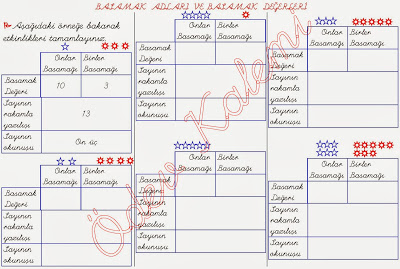 BASAMAK ADLARI VE BASAMAK DEĞERLERİ
Aşağıdaki örneğe bakarak
etkinlikleri tamamlayınız.
Onlar Basamağı
Birler Basamağı
Basamak Değeri
10
3
Sayının rakamla yazılışı
13
Sayının okunuşu
On üç
Onlar Basamağı
Birler Basamağı
Basamak Değeri
Sayının rakamla yazılışı
Sayının okunuşu
Onlar Basamağı
Birler Basamağı
Basamak Değeri
Sayının rakamla yazılışı
Sayının okunuşu
Onlar Basamağı
Birler Basamağı
Basamak Değeri
Sayının rakamla yazılışı
Sayının okunuşu
Onlar Basamağı
Birler Basamağı
Basamak Değeri
Sayının rakamla yazılışı
Sayının okunuşu
Onlar Basamağı
Birler Basamağı
Basamak Değeri
Sayının rakamla yazılışı
Sayının okunuşu
Ödev Kalemi